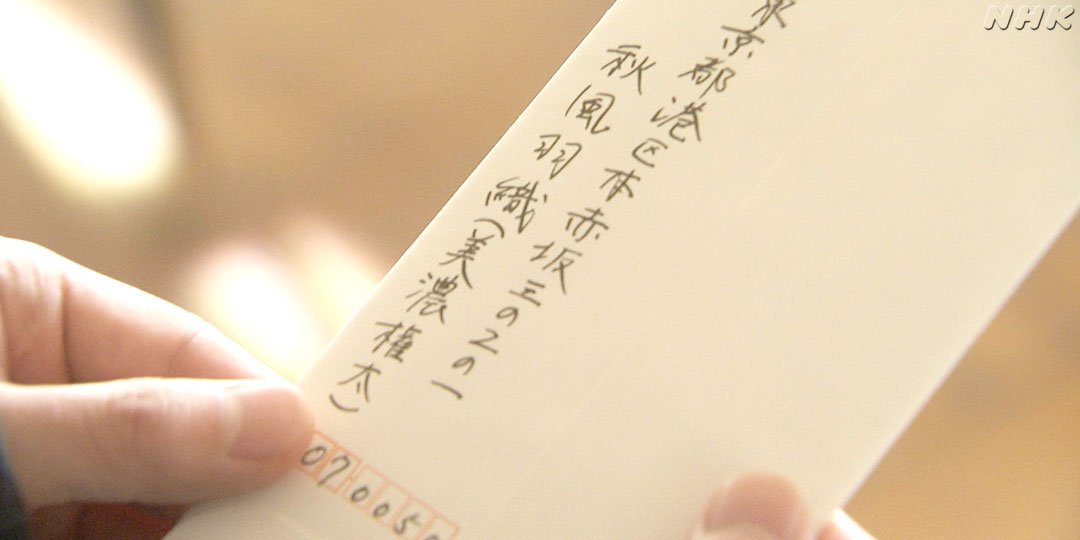 NHK
東京都港区本赤坂三の2の一
秋風羽織(美濃権太)
07005